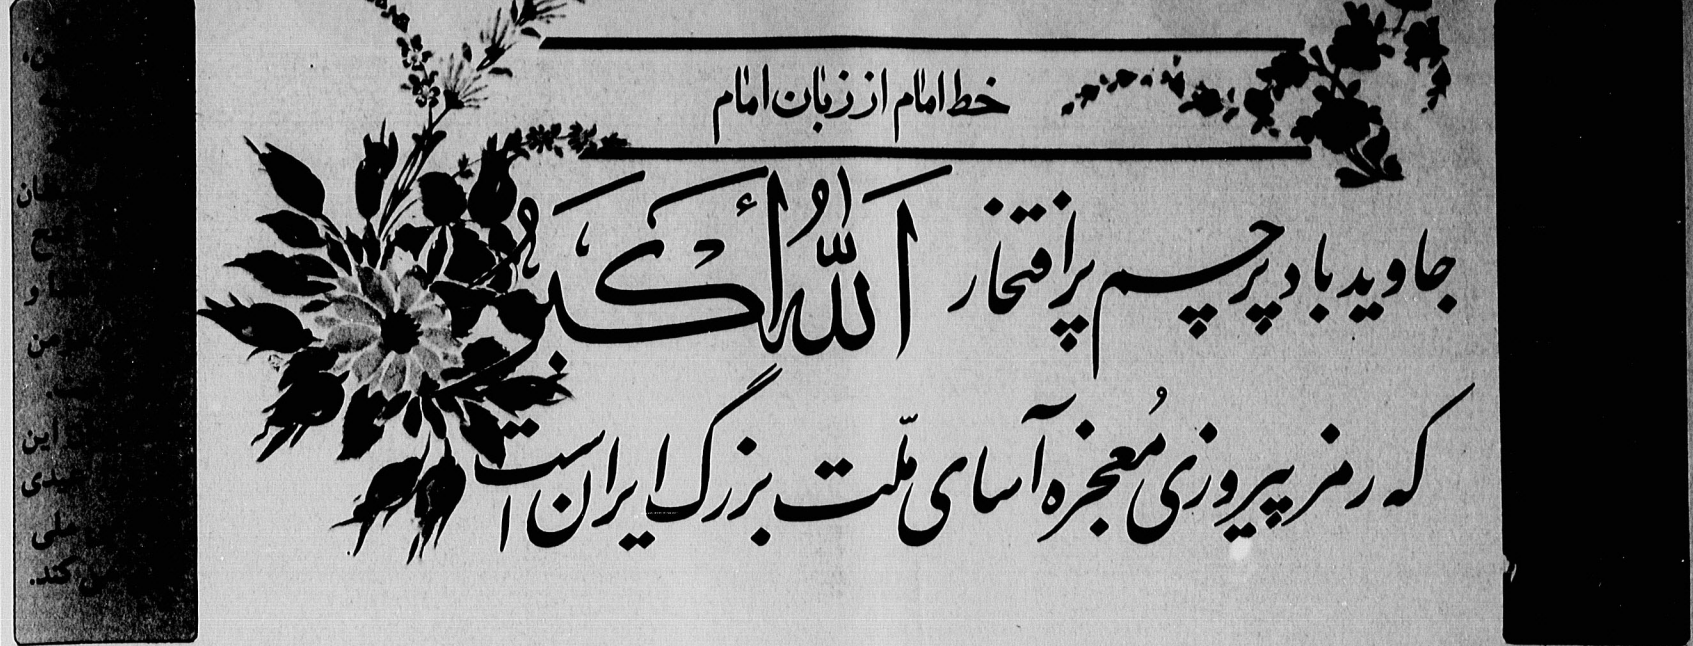 خط امام از زبان امام
جاوید باد پرچم پرافتخار اَللهُ أَکْبَرُ
که رمز پیروزی مُعجزه آسای ملّت بزرگ ایران است
این
ملی
کند.